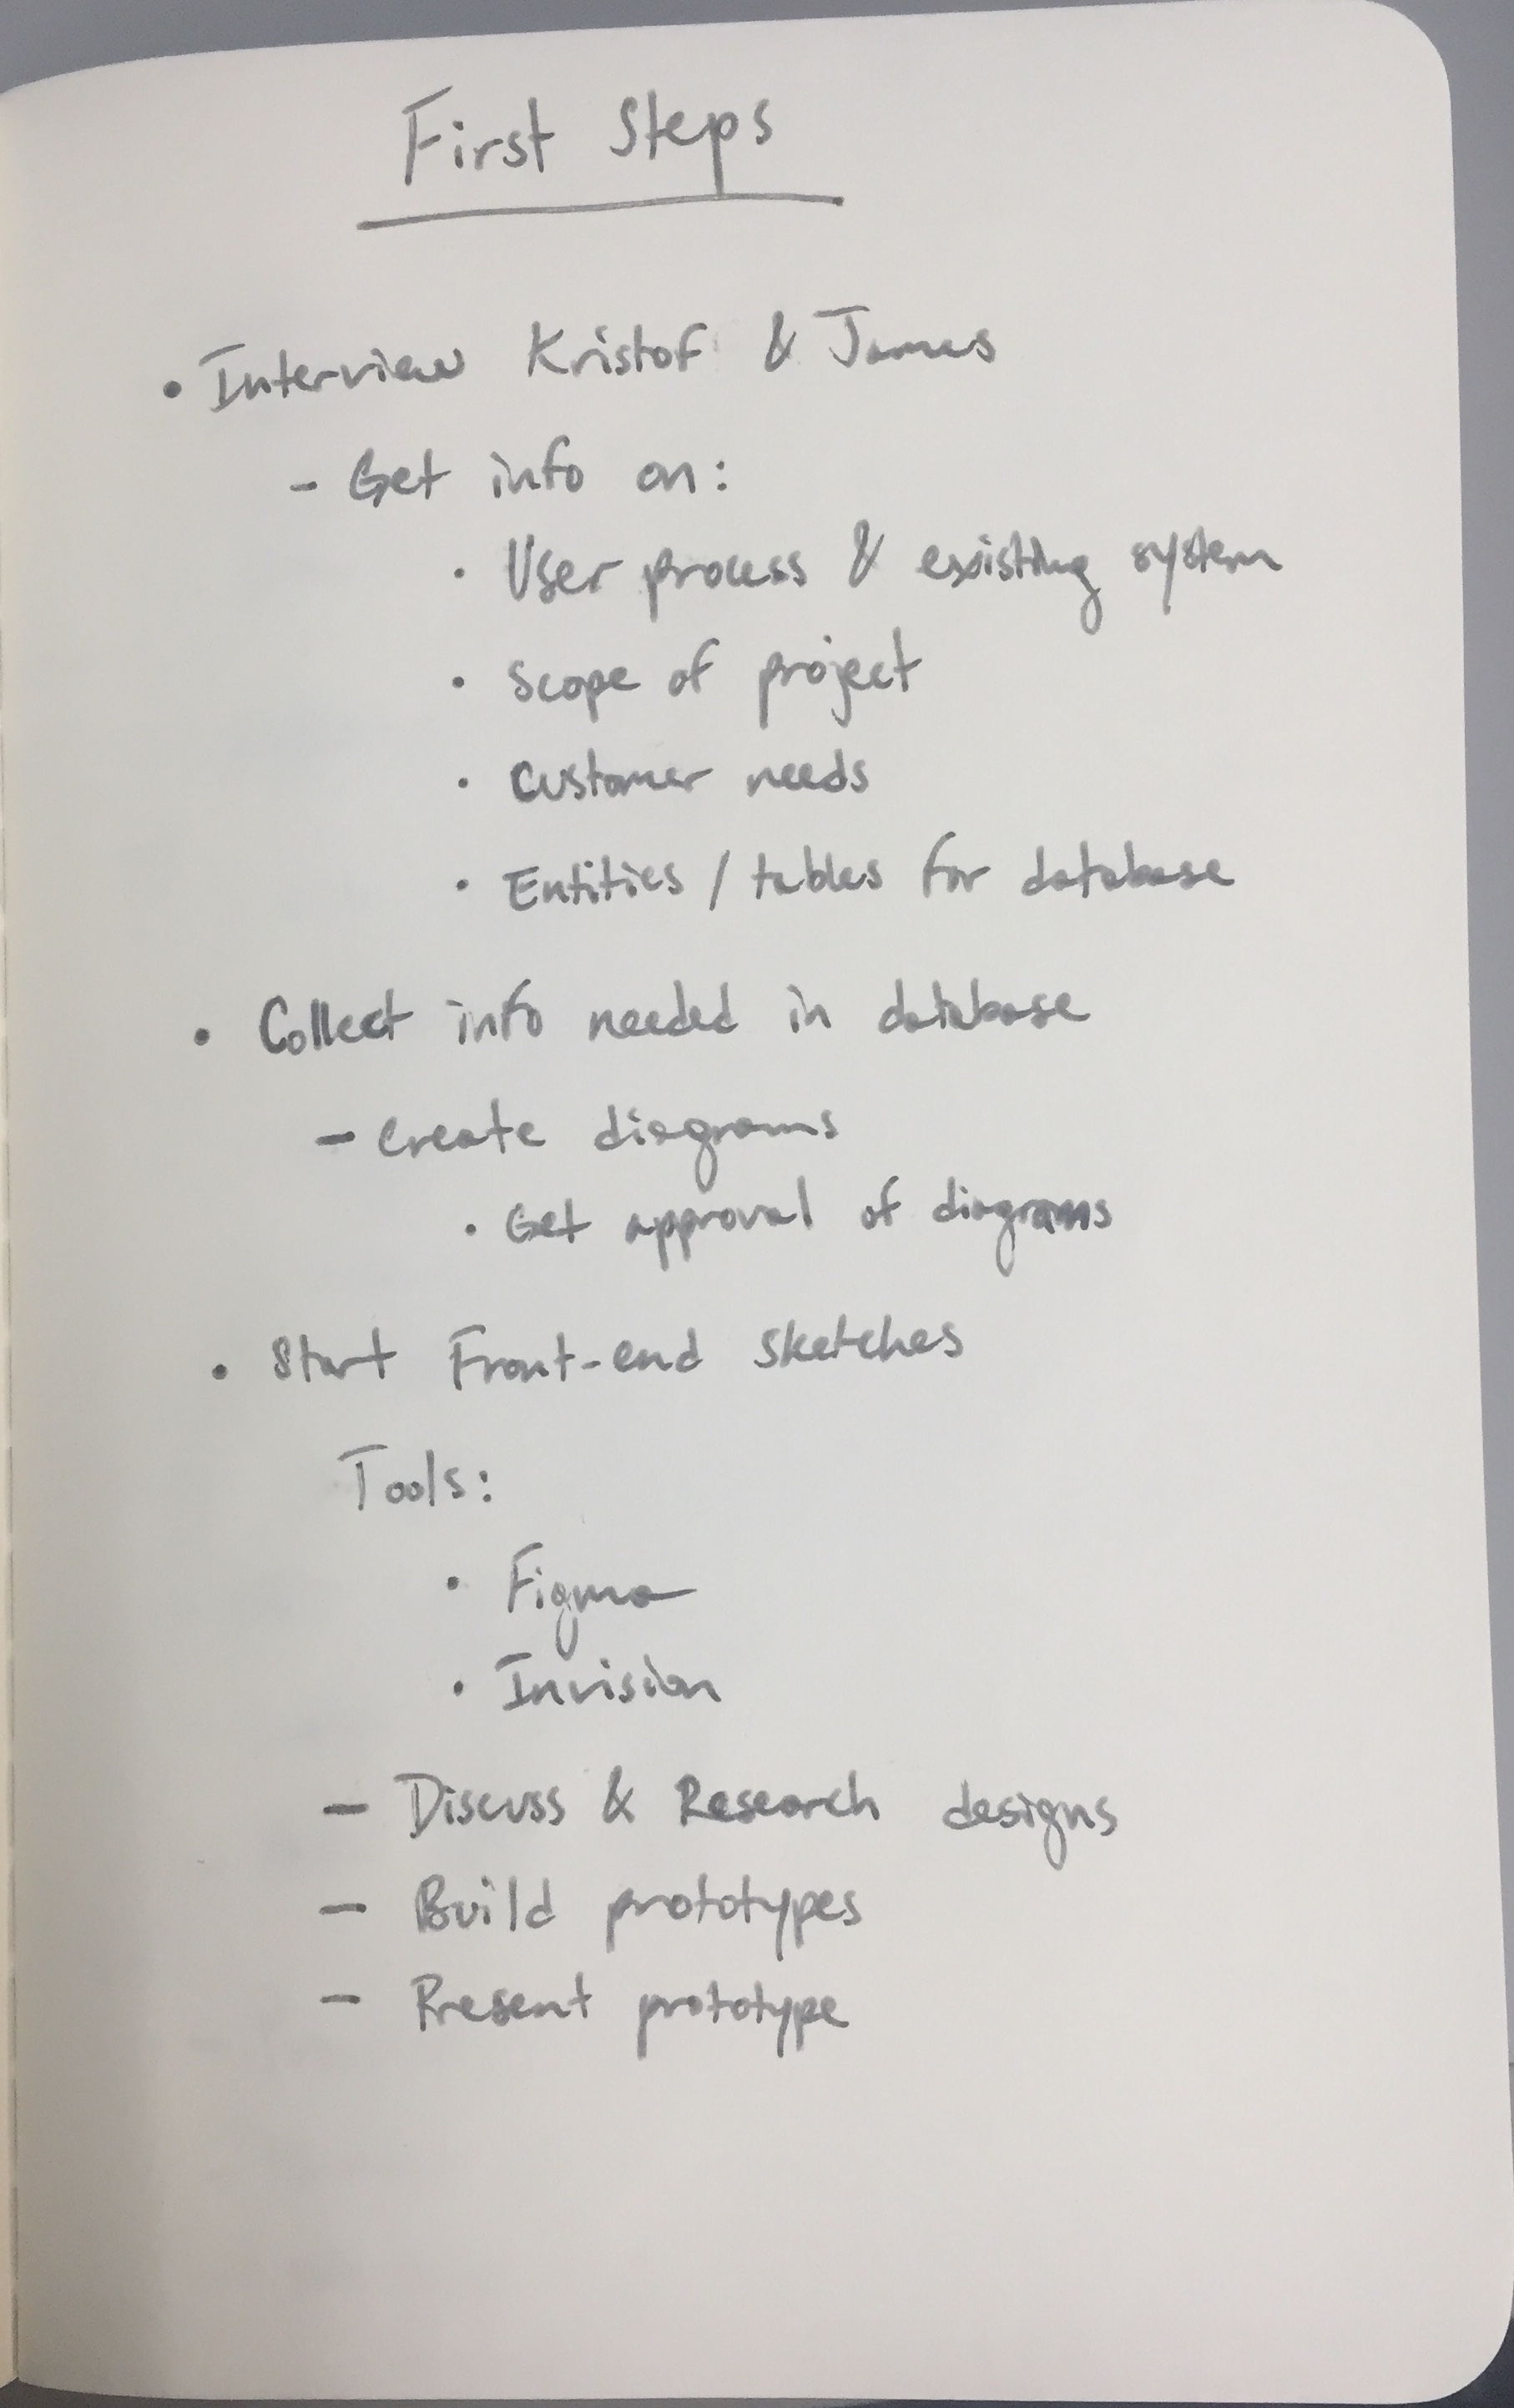 First Steps
• Interview Kristof & James
- Get info on:
• User process & existing system
• Scope of project
• Customer needs
• Entities / tables for database
• Collect info needed in database
- Create diagrams
• Get approval of diagrams
• Start Front-end sketches
Tools:
• Figma
• Invision
- Discuss & Research designs
- Build prototypes
- Present prototype